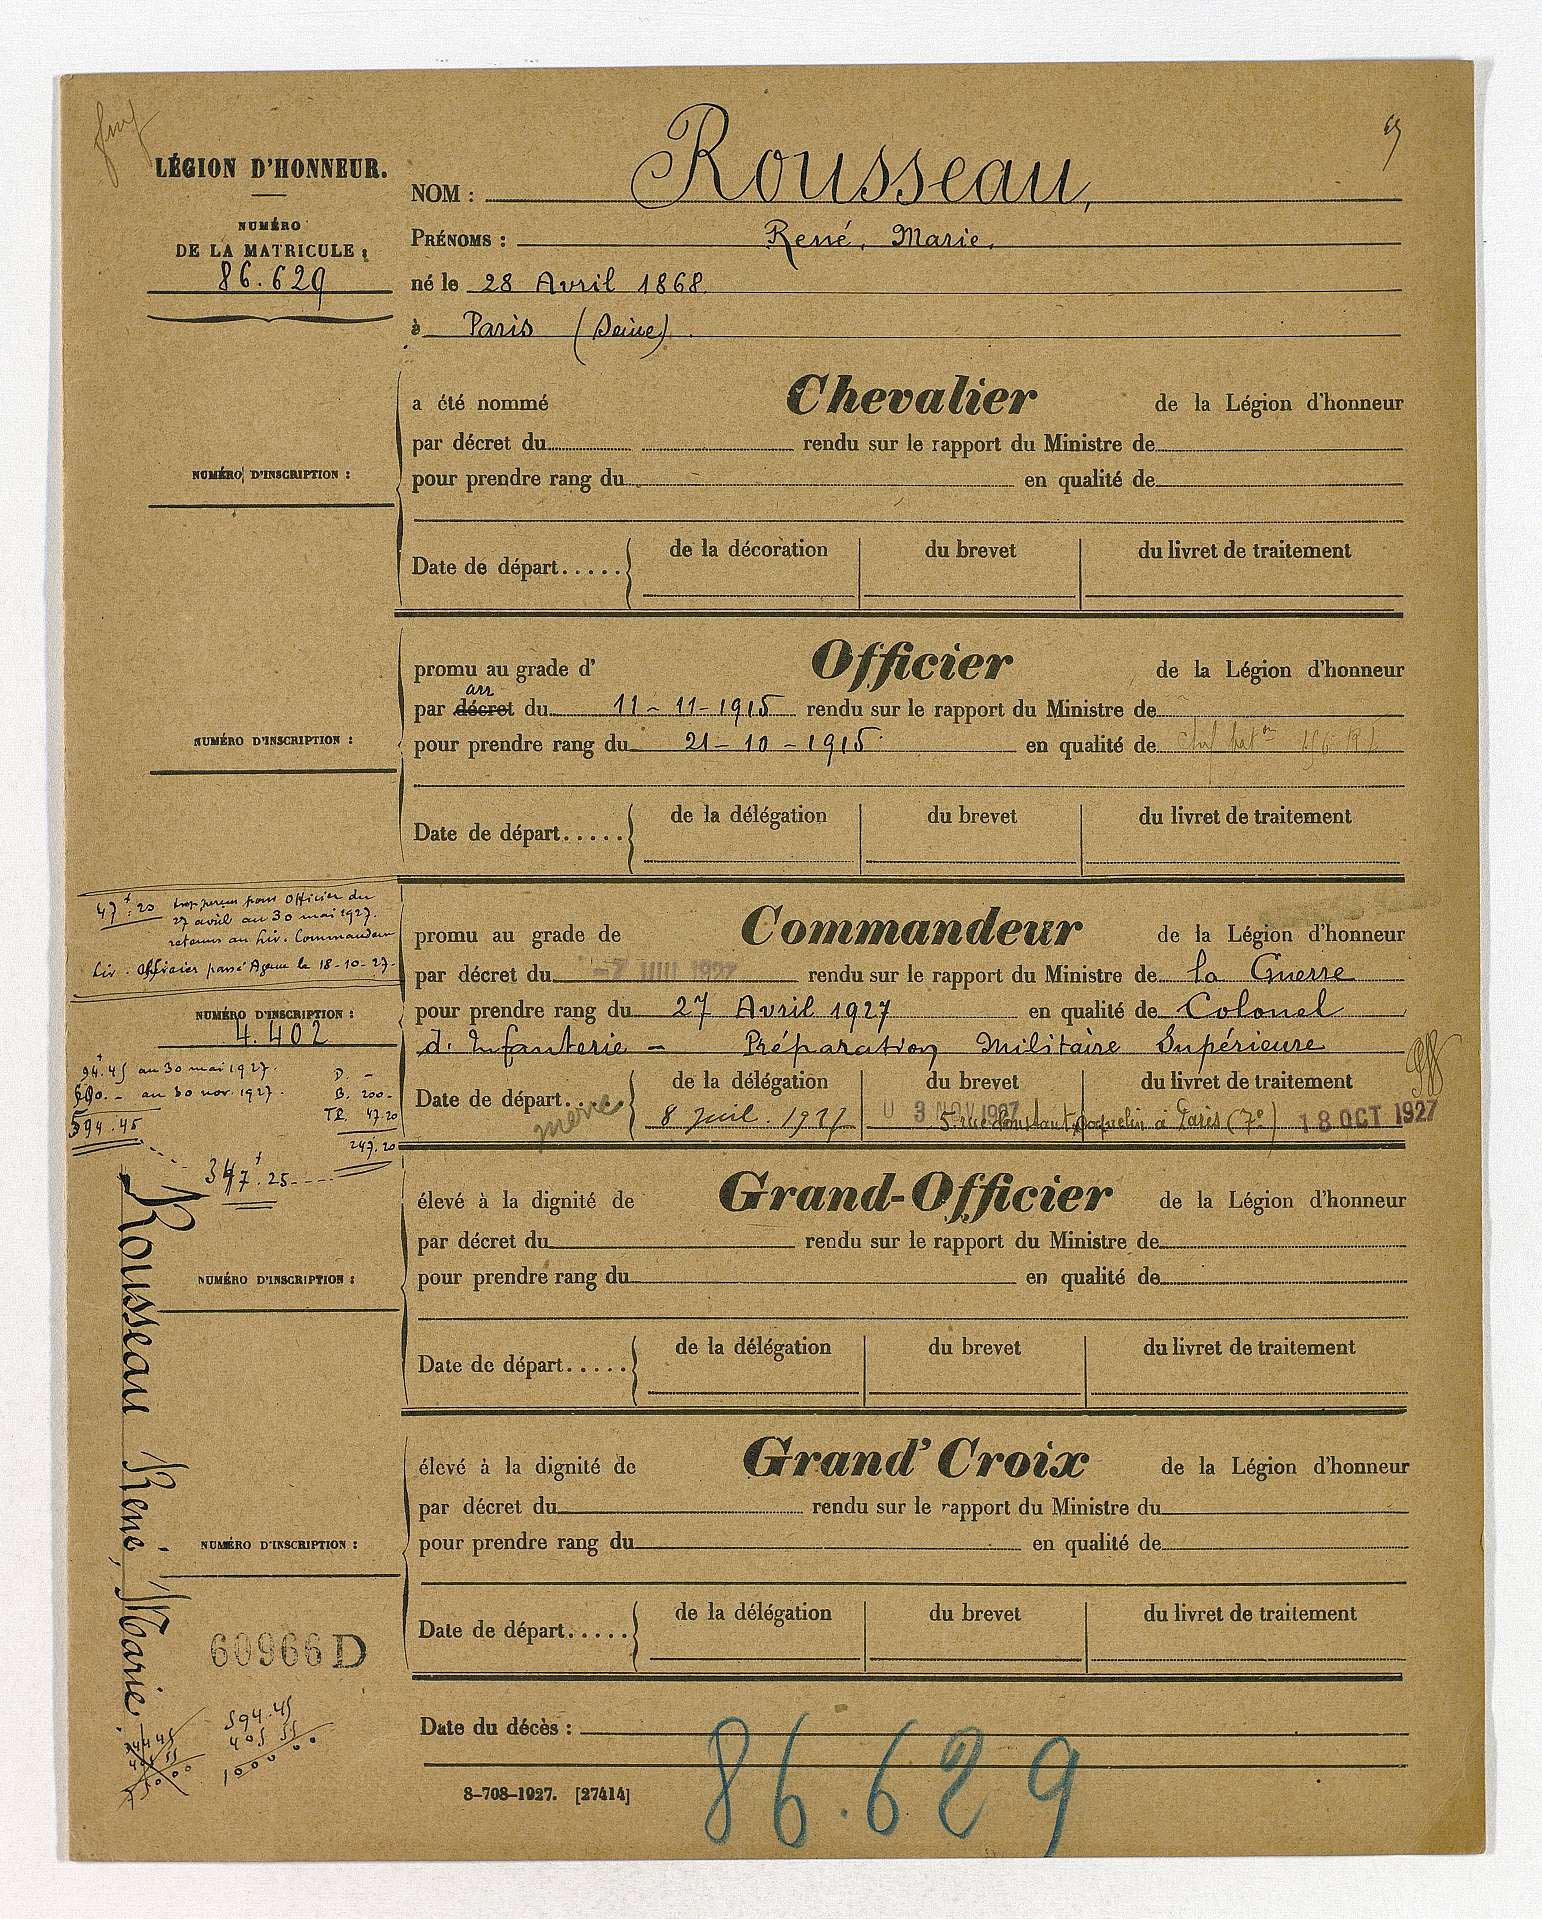 LÉGION D'HONNEUR.
NUMÉRO
DE LA MATRICULE :
86.629
NOM : Rousseau,
PRÉNOMS : René, Marie.
né le 28 Avril 1868.
à Paris (Seine).
a été nommé Chevalier de la Légion d'honneur
par décret du rendu sur le rapport du Ministre de
NUMÉRO D'INSCRIPTION :
pour prendre rang du en qualité de
Date de départ..... de la décoration du brevet du livret de traitement
promu au grade d' Officier de la Légion d'honneur
arr
par décret du 11-11-1915 rendu sur le rapport du Ministre de
NUMÉRO D'INSCRIPTION :
pour prendre rang du 21-10-1915 en qualité de
Date de départ..... de la délégation du brevet du livret de traitement
47.20 pour Officier du
27 avril au 30 mai 1927.
retenus au Liv. Commandeur
Liv. Officier passé Agence le 18-10-27.
promu au grade de Commandeur de la Légion d'honneur
par décret du 1927 rendu sur le rapport du Ministre de la Guerre
NUMÉRO D'INSCRIPTION :
4.402
pour prendre rang du 27 Avril 1927 en qualité de Colonel
d'Infanterie - Préparation Militaire Supérieure
94.45 au 30 mai 1927.
au 30 nov. 1927.
594.45
D. -
B. 200-
TR 47.20
247.20
347.25
Date de départ..... de la délégation du brevet du livret de traitement
8 Juil. 1927 3 NOV 1927 5. rue Constant Coquelin à Paris (7e) 18 OCT 1927
Rousseau René, Marie.
élevé à la dignité de Grand-Officier de la Légion d'honneur
par décret du rendu sur le rapport du Ministre de
NUMÉRO D'INSCRIPTION :
pour prendre rang du en qualité de
Date de départ..... de la délégation du brevet du livret de traitement
élevé à la dignité de Grand'Croix de la Légion d'honneur
par décret du rendu sur le rapport du Ministre du
NUMÉRO D'INSCRIPTION :
pour prendre rang du en qualité de
Date de départ..... de la délégation du brevet du livret de traitement
60966 D
594.45
405 55
1000 00
Date du décès :
8-708-1927. [27414]
86.629